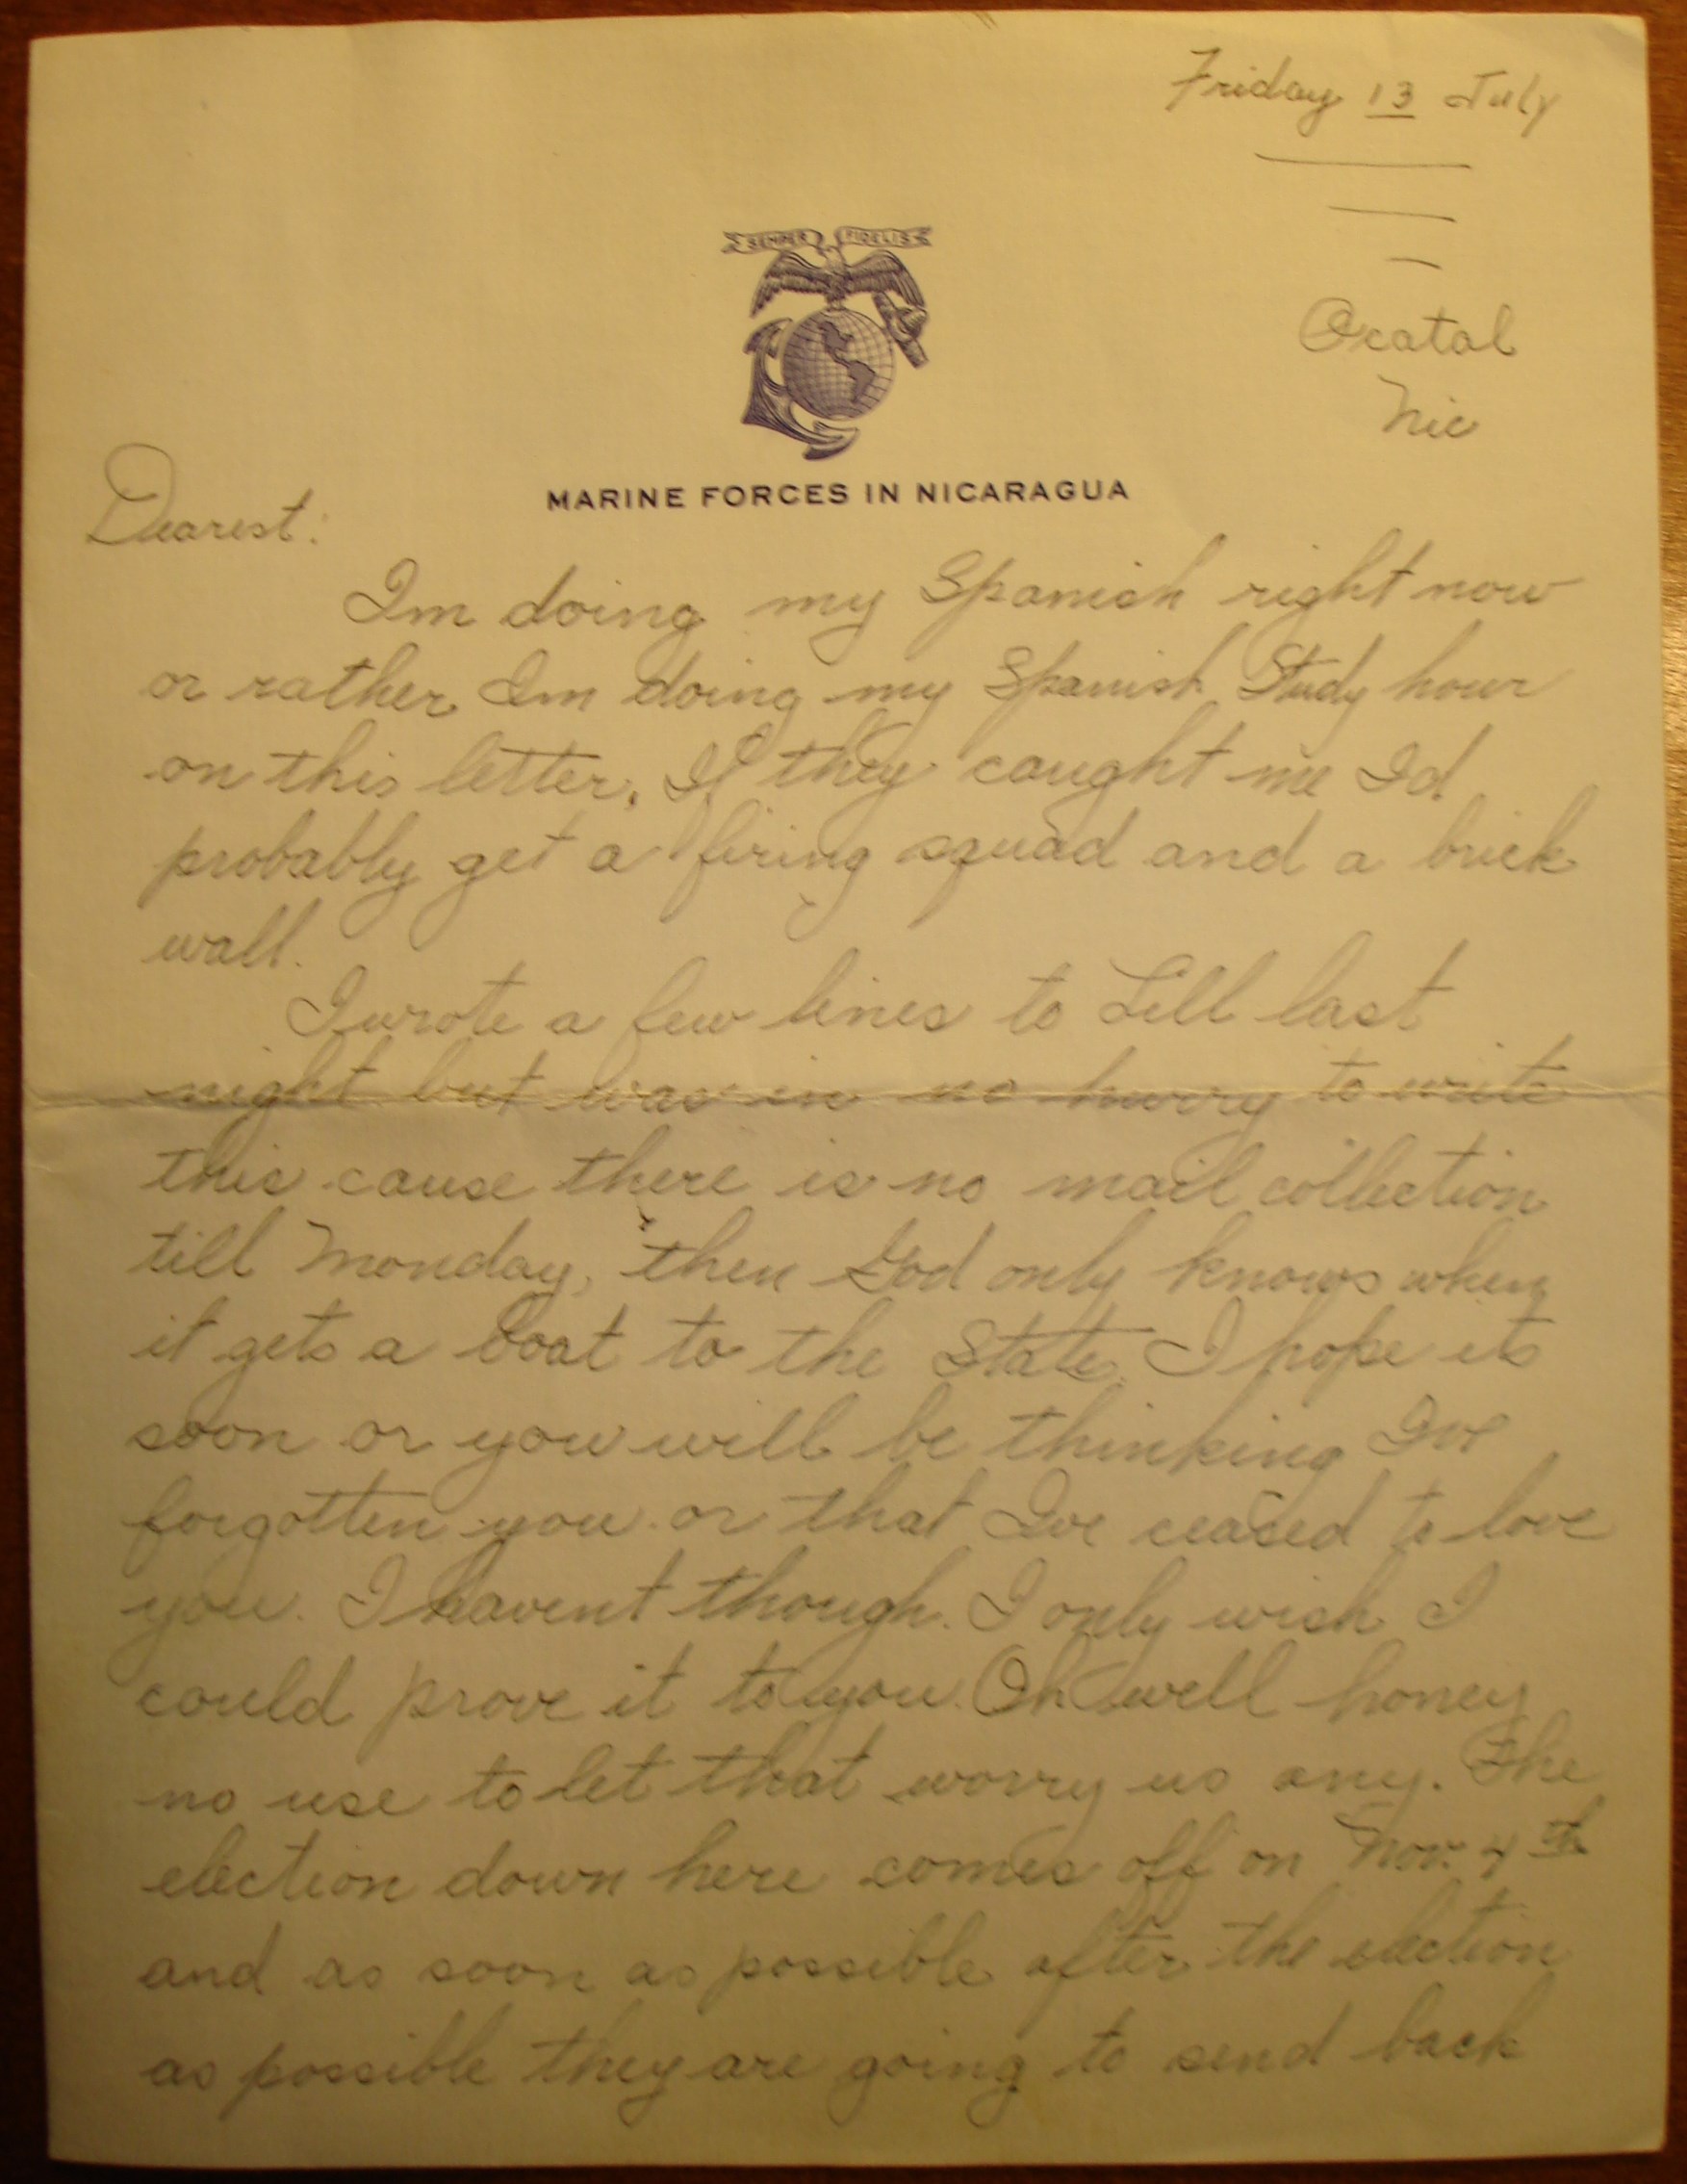 Friday 13 July
SEMPER FIDELIS
Ocatal
Nic
MARINE FORCES IN NICARAGUA
Dearest:
Im doing my Spanish right now
or rather Im doing my Spanish Study hour
on this letter. If they caught me Id
probably get a firing squad and a brick
wall.
I wrote a few lines to Lill last
night but was in no hurry to write
this cause there is no mail collection
till Monday, then God only knows when
it gets a boat to the State. I hope its
soon or you will be thinking Ive
forgotten you or that Ive ceased to love
you. I havent though. I only wish I
could prove it to you. Oh well honey
no use to let that worry us any. The
election down here comes off on Nov. 4th
and as soon as possible after the election
as possible they are going to send back